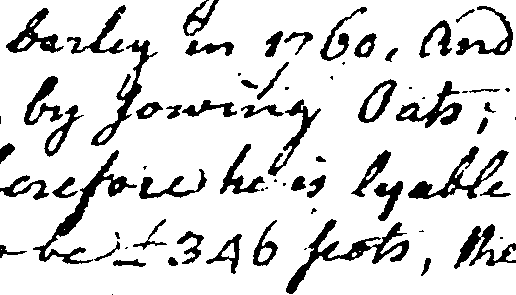 barley in 1760, And
by Sowing Oats;
herefore he is lyable
to be £346 scots, the